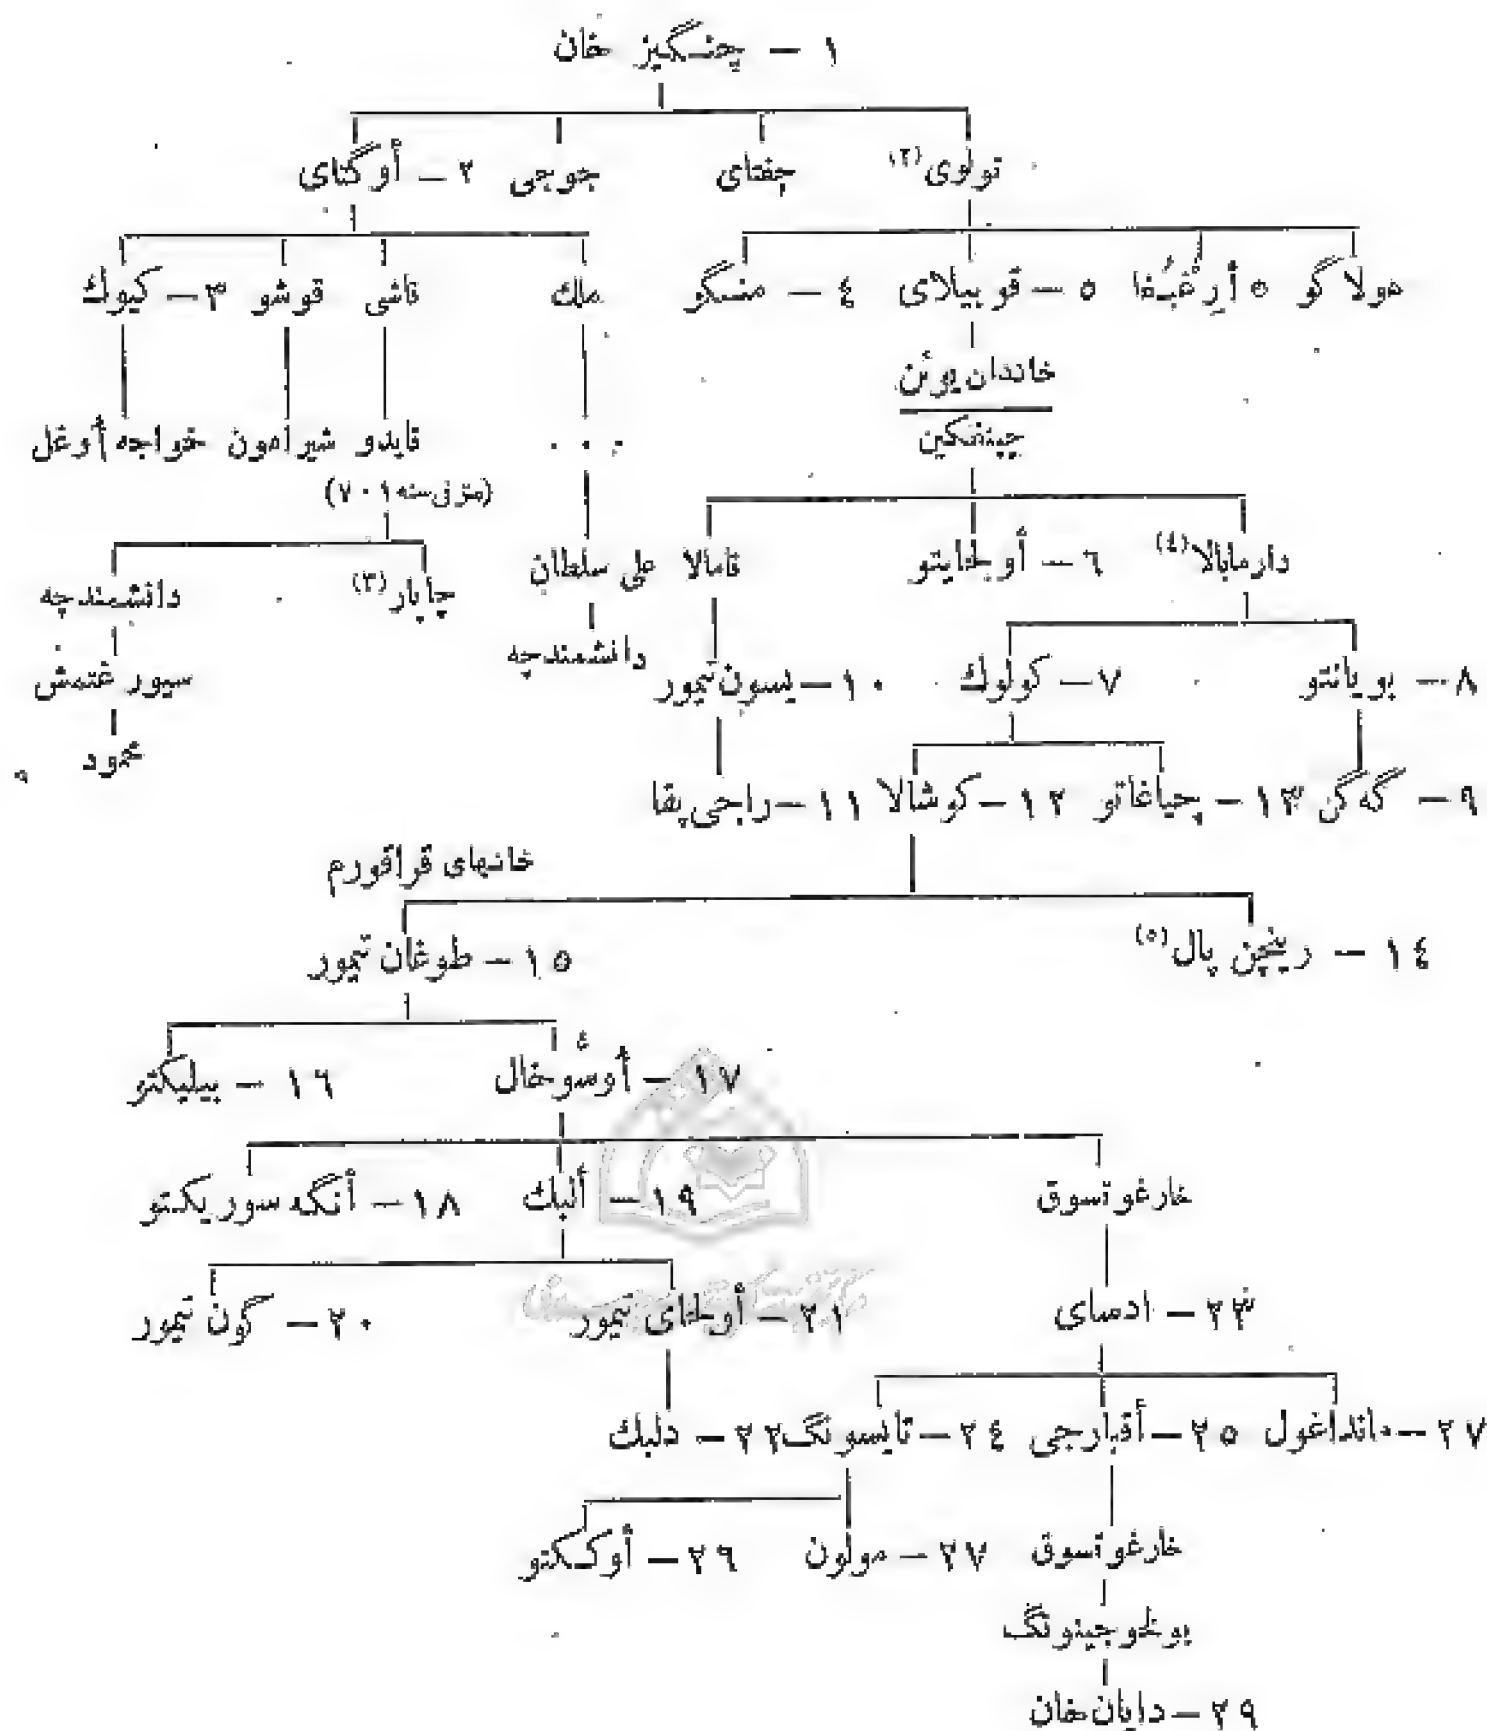 ۱ – چنگیز خان
تولوی (۲) چغتای جوجی ۲ – أوگتای
هولاگو ٥ أرِغبُغا ٥ – قوبیلای ٤ – منگو ملك قاشی قوشو ۳ – کیوك
خاندان یوئن
چینگکین
. . . قایدو شیرامون خواجه أوغل
(متوفی سنه ۷۰۱)
دارمابالا (٤) ٦ – أولجایتو قامالا علی سلطان چاپار (۳) دانشمندچه
۸ – بویانتو ۷ – کولوك ۱۰ – یسون تیمور دانشمندچه سیور غتمش
محمود
۹ – گه گن ۱۳ – جیاغاتو ۱۲ – کوشالا ۱۱ – راجی پقا
خانهای قراقورم
۱٤ – رینچن پال (٥) ۱٥ – طوغان تیمور
۱۷ – أوسُوخال ۱٦ – بیلیکتو
خارغوتسوق ۱۹ – ألبك ۱۸ – أنگه سوریکتو
۲۳ – ادسای ۲۱ – أولجای تیمور ۲۰ – گون تیمور
۲۷ – مانداغول ۲٥ – أقبارجی ۲٤ – تایسونگ ۲۲ – دلبك
خارغوتسوق ۲۷ – مولون ۲٦ – أوککتو
بولخوجینونگ
۲۹ – دایان خان